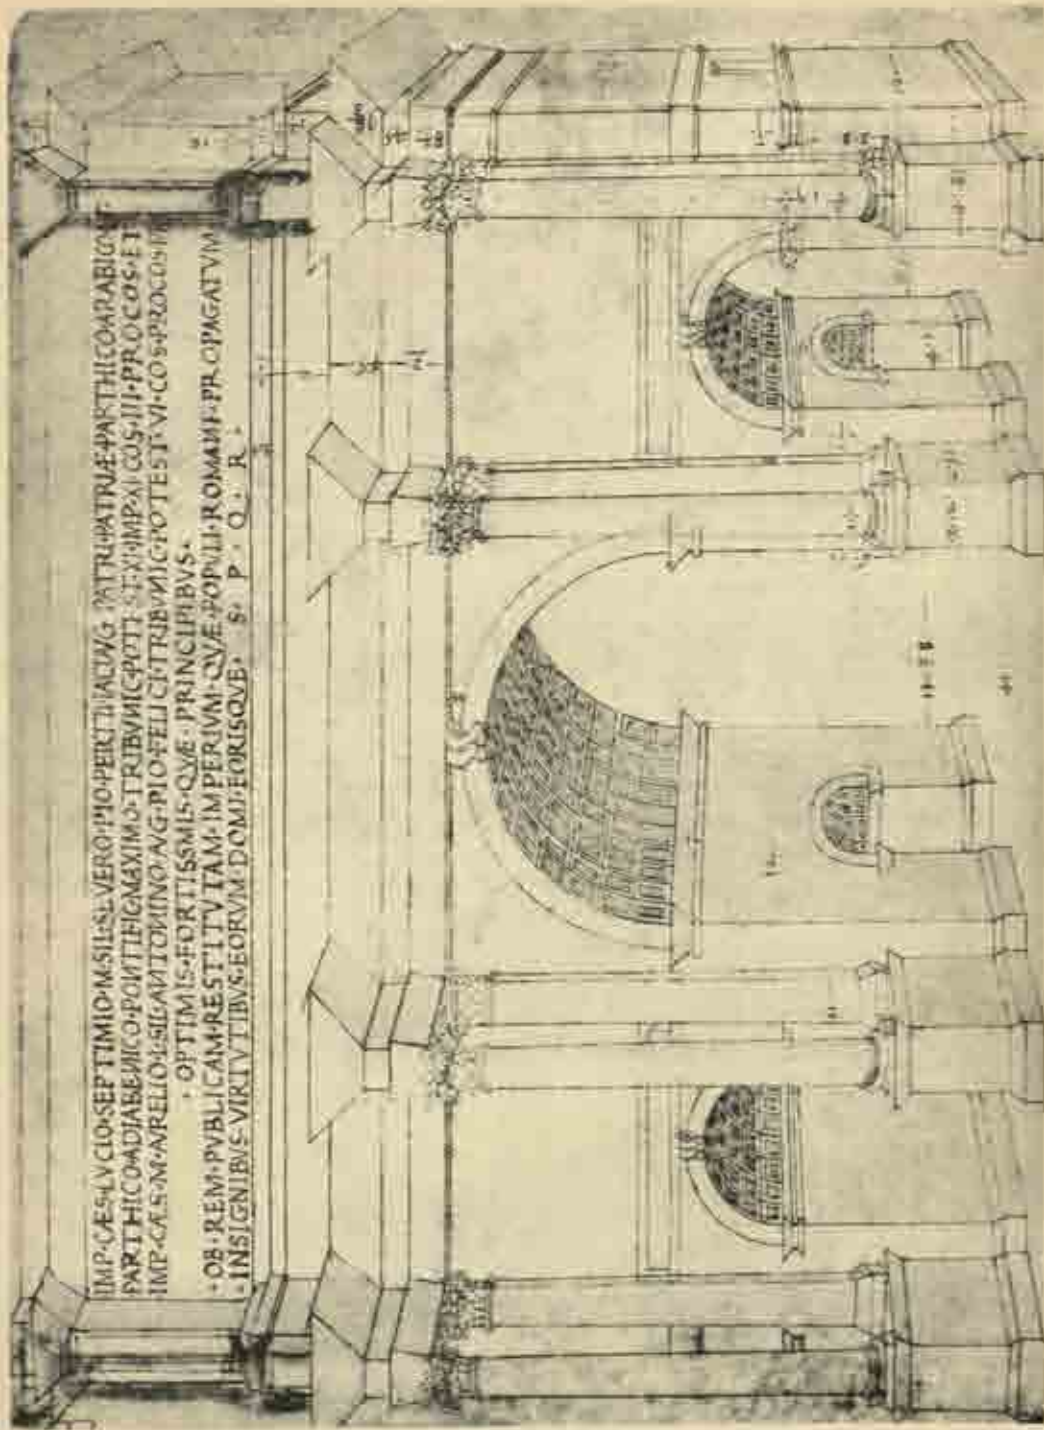 IMP·CÆS·LVCIO·SEPTIMIO·M·SIL·SEVERO·PIO·PERTINACI·AVG·PATRI·PATRIÆ·PARTHICO·ARABICO·ET
PARTHICO·ADIABENICO·PONTIFIC·MAXIMO·TRIBVNIC·POTEST·XI·IMP·XI·COS·III·PROCOS·ET
IMP·CÆS·M·AVRELIO·L·SIL·ANTONINO·AVG·PIO·FELICI·TRIBVNIC·POTEST·VI·COS·PROCOS·
·OPTIMIS·FORTISSMIS·QVÆ·PRINCIPIBVS·
·OB·REM·PVBLICAM·RESTITVTAM·IMPERIVM·QVÆ·POPVLI·ROMANI·PROPAGATVM
·INSIGNIBVS·VIRTVTIBVS·EORVM·DOMI·FORISQVE· S· P· Q· R·